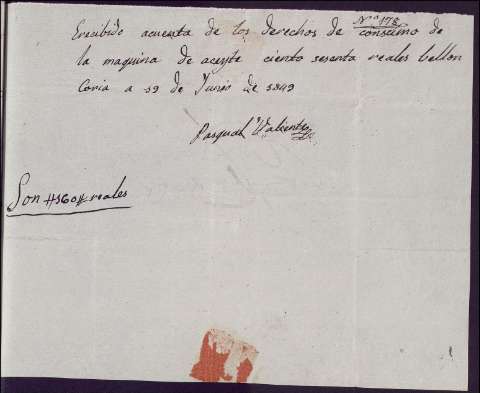 Nº 178
Erecibido acuenta de los derechos de consumo de
la maquina de aceyte ciento sesenta reales bellon
Coria a 19 de Junio de 1849
Pasqual Valiente
Son #160# reales